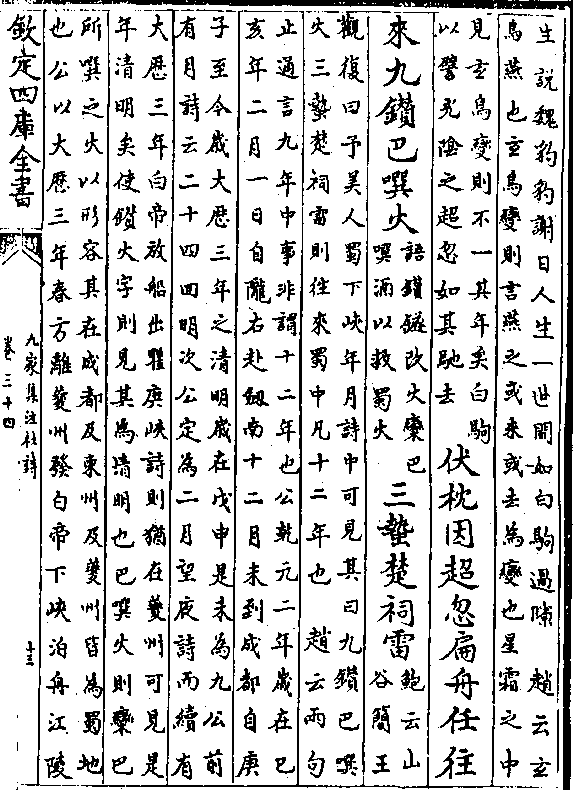 生說魏豹豹謝曰人生一世間如白駒過隙　趙云玄
鳥燕也玄鳥變則言燕之或來或去為變也星霜之中
見玄鳥變則不一其年矣白駒
以譬光陰之超忽如其馳去
伏枕因超忽扁舟任往
來九鑽巴噀火
語鑽鐩改火欒巴
噀酒以救蜀火
三蟄楚祠雷
鮑云山
谷簡王
觀復曰予美人蜀下峽年月詩中可見其曰九鑽巴噀
火三蟄楚祠雷則往來蜀中凡十二年也　趙云兩句
止通言九年中事非謂十二年也公乾元二年歲在已
亥年二月一日自隴右赴劔南十二月末到成都自庚
子至今歲大歴三年之清明歲在戊申是未為九公前
有月詩云二十四回明次公定為二月望夜詩而續有
大歴三年白帝放船出瞿唐峽詩則猶在夔州可見是
年清明矣使鑽火字則見其為清明也巴噀火則欒巴
所噀之火以形容其在成都及東州及夔州皆為蜀地
也公以大歴三年春方離夔州發白帝下峽泊舟江陵
欽定四庫全書
九家集注杜詩
卷三十四
十三